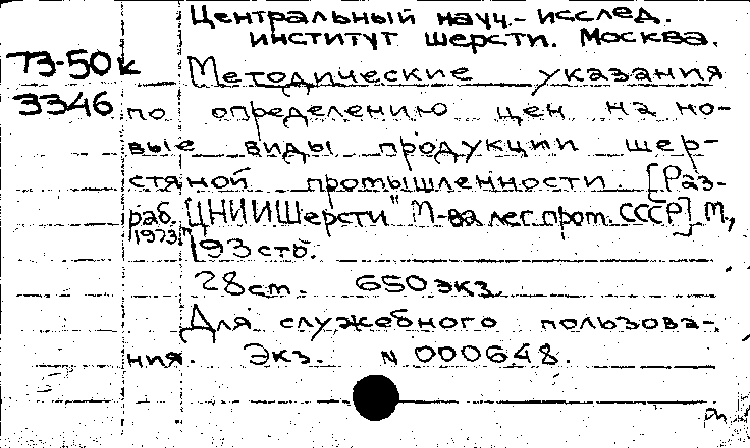 Центральный науч.-исслед.
институт шерсти. Москва.
73-50к Методические указания
3346 по определению цен на но-
вые виды продукции шер-
стяной промышленности. [Раз-
раб. ЦНИИШерсти" М-ва лег. пром. СССР] М.,
1973. 193 стб.
28 ст. 650 экз.
Для служебного пользова-
ния. Экз. N 000648.